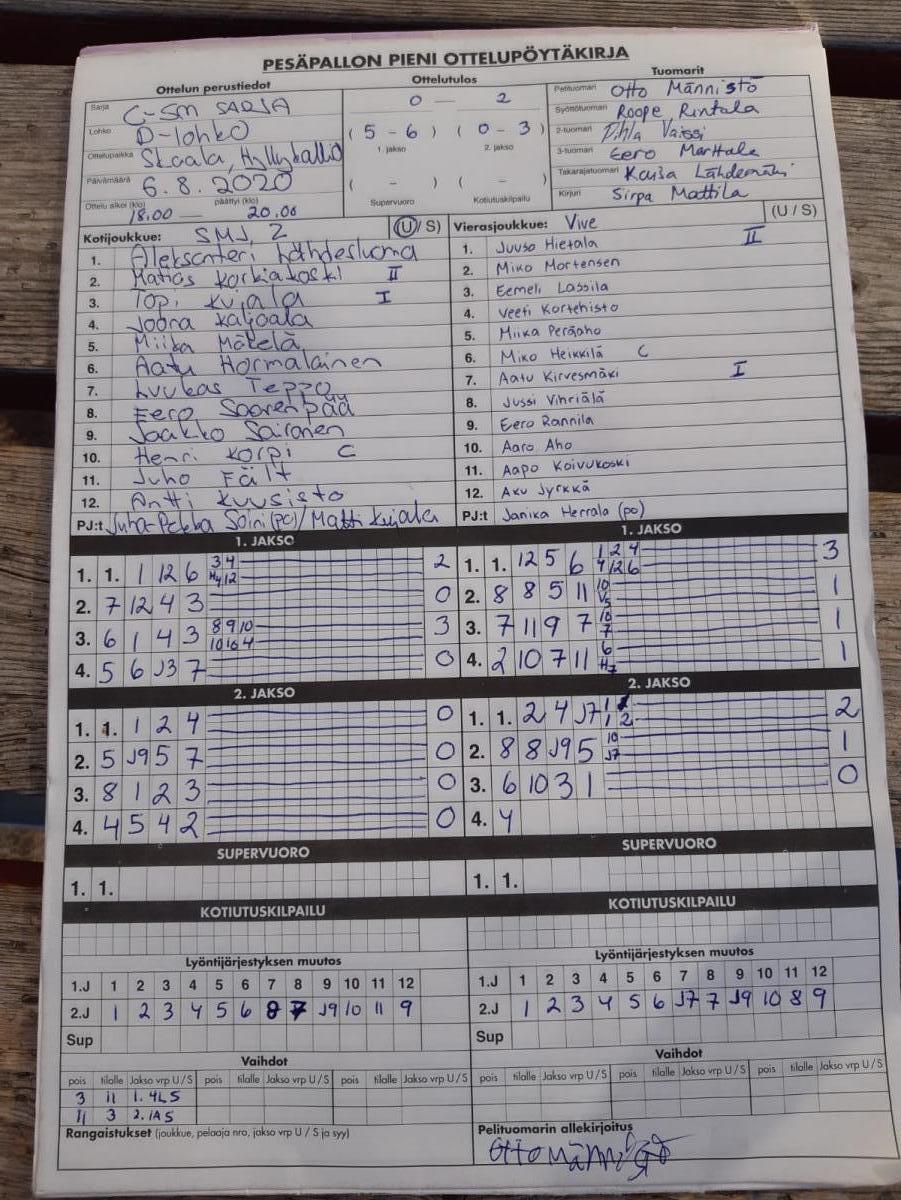 PESÄPALLON PIENI OTTELUPÖYTÄKIRJA
Ottelun perustiedot
Sarja C-SM SARJA
Lohko D-lohko
Ottelupaikka Skaala, Hyllykallio
Päivämäärä 6.8.2020
Ottelu alkoi (klo) 18.00 — päättyi (klo) 20.00
Ottelutulos
0 — 2
(5 - 6) (0 - 3)
1. jakso 2. jakso
( - ) ( - )
Supervuoro Kotiutuskilpailu
Tuomarit
Pelituomari Otto Männistö
Syöttötuomari Roope Rintala
2-tuomari
3-tuomari Eero Marttala
Takarajatuomari Kaisa Lähdemäki
Kirjuri Sirpa Mattila
Kotijoukkue: SMJ, 2 (U / S)
1. Aleksanteri Lähdesluoma
2. Matias Korkiakoski II
3. Topi Kujala I
4. Joona
5. Miika Mäkelä
6. Aatu Hormalainen
7. Luukas Teppo
8. Eero Saarenpää
9. Jaakko Sairanen
10. Henri Korpi C
11. Juho Fält
12. Antti Kuusisto
PJ:t Juha-Pekka Soini (po) / Matti Kujala
Vierasjoukkue: Vive (U / S)
1. Juuso Hietala II
2. Miko Mortensen
3. Eemeli Lassila
4. Veeti Kortehisto
5. Miika Peräaho
6. Miko Heikkilä C
7. Aatu Kirvesmäki I
8. Jussi Vihriälä
9. Eero Rannila
10. Aaro Aho
11. Aapo Koivukoski
12. Aku Jyrkkä
PJ:t Janika Herrala (po)
1. JAKSO
1. 1. 1 12 6 3 4 2
H4 12
2. 7 12 4 3 0
3. 6 1 4 3 8 9 10 3
10 10 4
4. 5 6 J3 7 0
1. JAKSO
1. 1. 12 5 6 1 2 4 3
4 12 6
2. 8 8 5 11 10 1
V5
3. 7 11 9 7 10 1
7
4. 2 10 7 11 6 1
H7
2. JAKSO
1. 1. 1 2 4 0
2. 5 J9 5 7 0
3. 8 1 2 3 0
4. 4 5 4 2 0
2. JAKSO
1. 1. 2 4 J7 1 2
1 2
2. 8 8 J9 5 10 1
J7
3. 6 10 3 1 0
4. 4
SUPERVUORO
1. 1.
SUPERVUORO
1. 1.
KOTIUTUSKILPAILU
KOTIUTUSKILPAILU
Lyöntijärjestyksen muutos
1.J 1 2 3 4 5 6 7 8 9 10 11 12
2.J 1 2 3 4 5 6 8 7 J9 10 11 9
Sup
Lyöntijärjestyksen muutos
1.J 1 2 3 4 5 6 7 8 9 10 11 12
2.J 1 2 3 4 5 6 J7 7 J9 10 8 9
Sup
Vaihdot
pois tilalle Jakso vrp U/S pois tilalle Jakso vrp U/S pois tilalle Jakso vrp U/S
3 11 1. 4L S
11 3 2. 1A S
Vaihdot
pois tilalle Jakso vrp U/S pois tilalle Jakso vrp U/S pois tilalle Jakso vrp U/S
Rangaistukset (joukkue, pelaaja nro, jakso vrp U / S ja syy)
Pelituomarin allekirjoitus
Otto Männistö